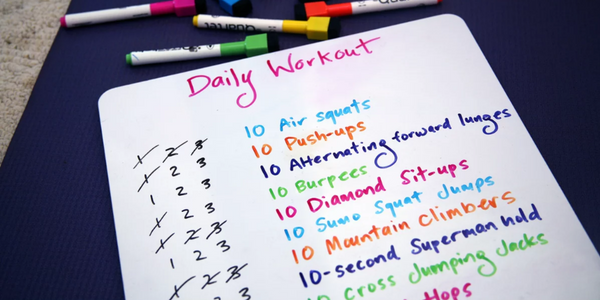 Daily Workout
1 2 3 10 Air squats
1 2 3 10 Push-ups
1 2 3 10 Alternating forward lunges
1 2 3 10 Burpees
1 2 3 10 Diamond Sit-ups
1 2 3 10 Sumo Squat Jumps
1 2 3 10 Mountain Climbers
10-second Superman hold
10 Cross Jumping Jacks
Hops